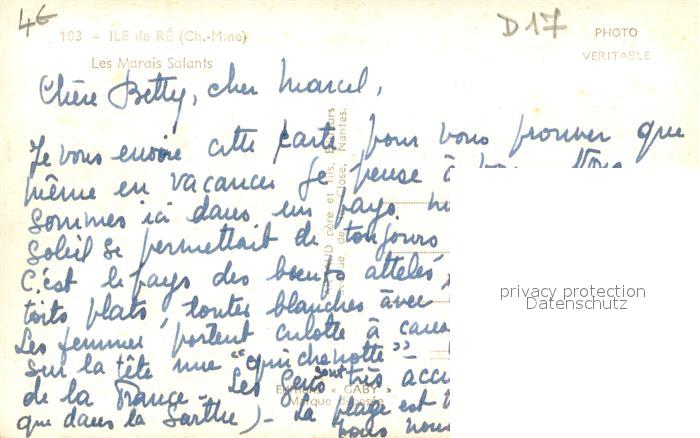 4€
D17
103 - ILE de RÉ (Ch.-Mme)
Les Marais Salants
PHOTO
VERITABLE
Chère Betty, cher Marcel,
Je vous envoie cette carte pour vous prouver que
même en vacances je pense à
sommes ici dans un pays
soleil se permettait de toujours
C'est le pays des boeufs attelés,
toits plats, toutes blanches avec
Les femmes portent culotte à
sur la tête une "quichenotte" -
de la France - Les Gens sont très
que dans la Sarthe) - La plage est
vous
père et fils,
Close, Nantes.
« GABY »
Marque déposée
privacy protection
Datenschutz